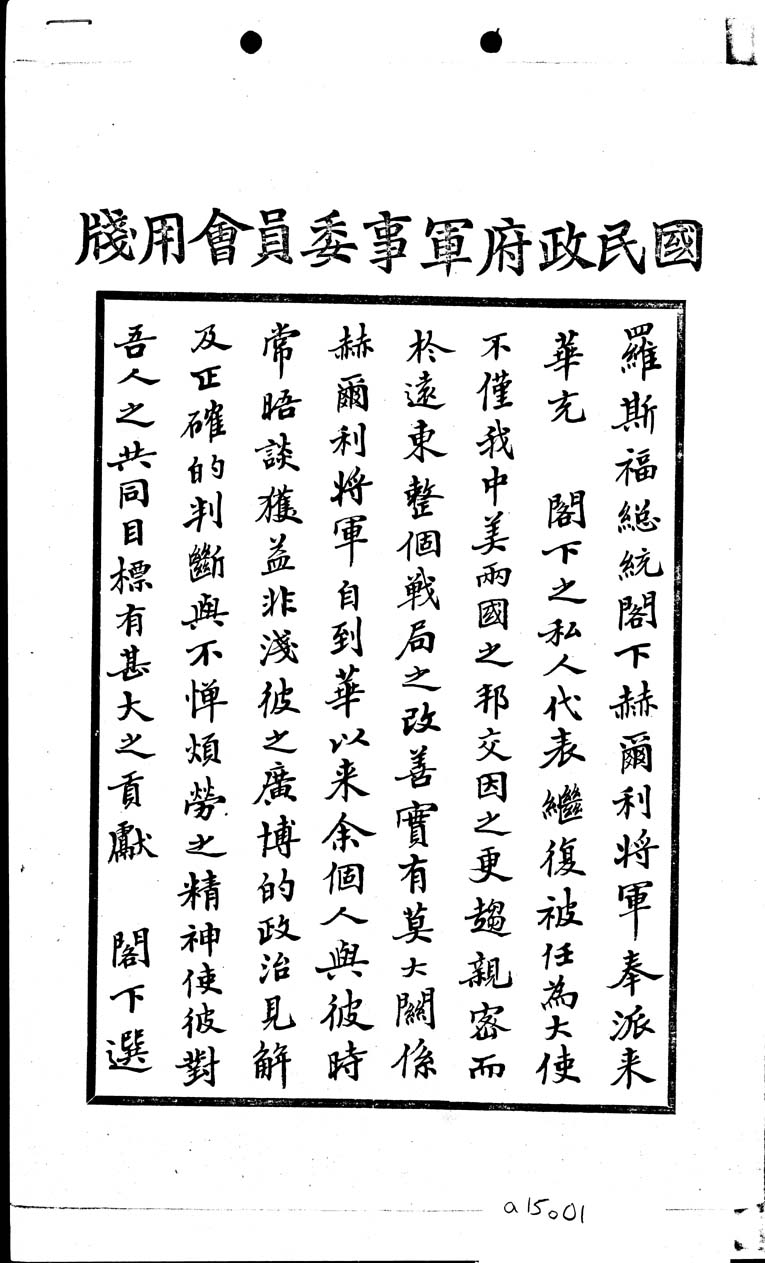 國民政府軍事委員會用牋
羅斯福總統閣下赫爾利將軍奉派来
華充 閣下之私人代表繼復被任為大使
不僅我中美兩國之邦交因之更趨親密而
於遠東整個戰局之改善實有莫大關係
赫爾利將軍自到華以来余個人與彼時
常晤談獲益非淺彼之廣博的政治見解
及正確的判斷與不憚煩勞之精神使彼對
吾人之共同目標有甚大之貢獻 閣下選
a15o01